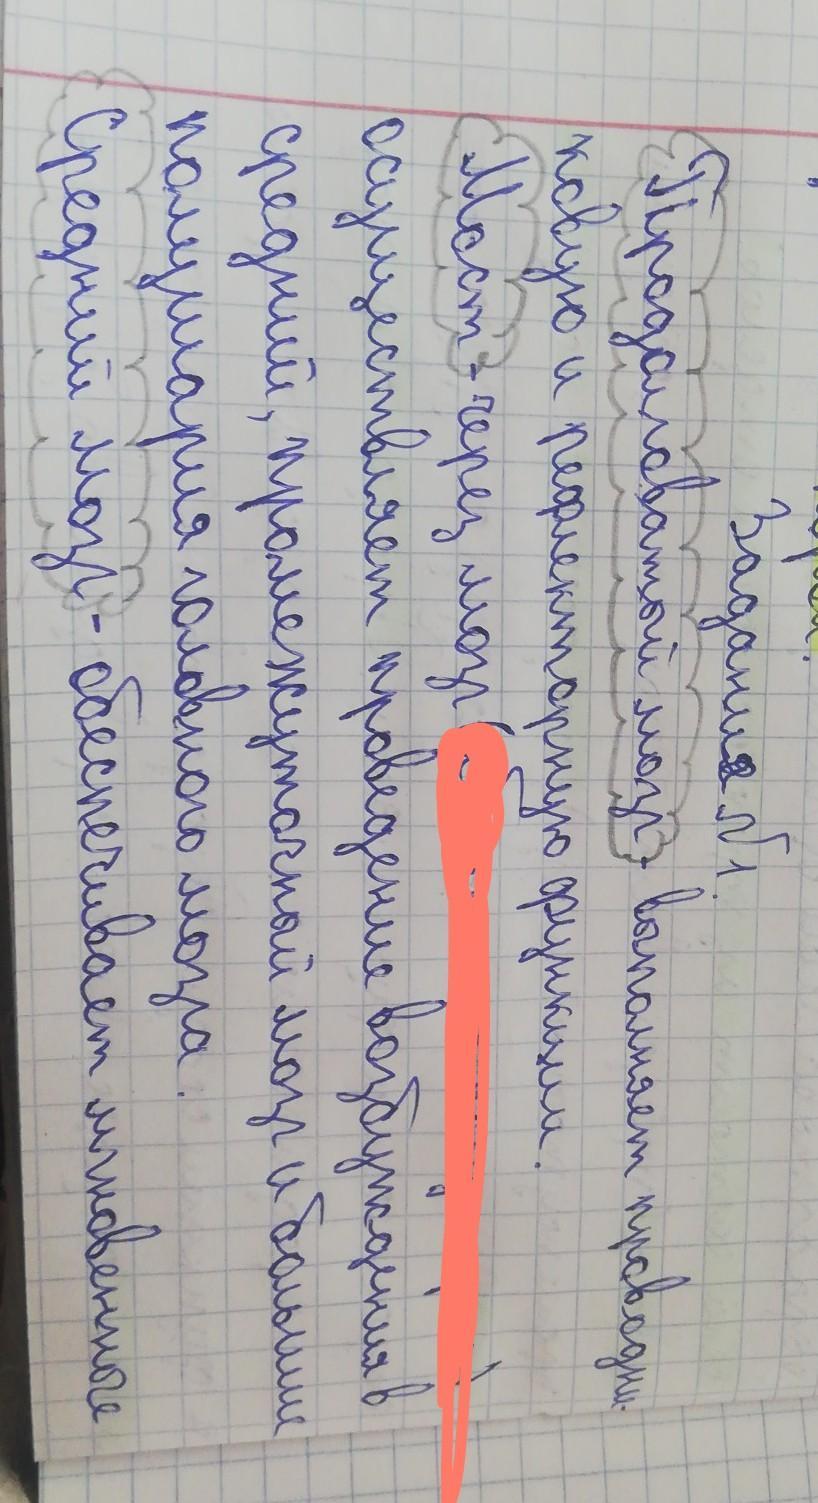 Задания №1.
Продолговатый мозг - выполняет проводни-
ковую и рефлекторную функции.
Мост - через мозг
осуществляет проведение возбуждения в
средний, промежуточной мозг и больши
полушария головного мозга.
Средний мозг - обеспечивает мгновенное